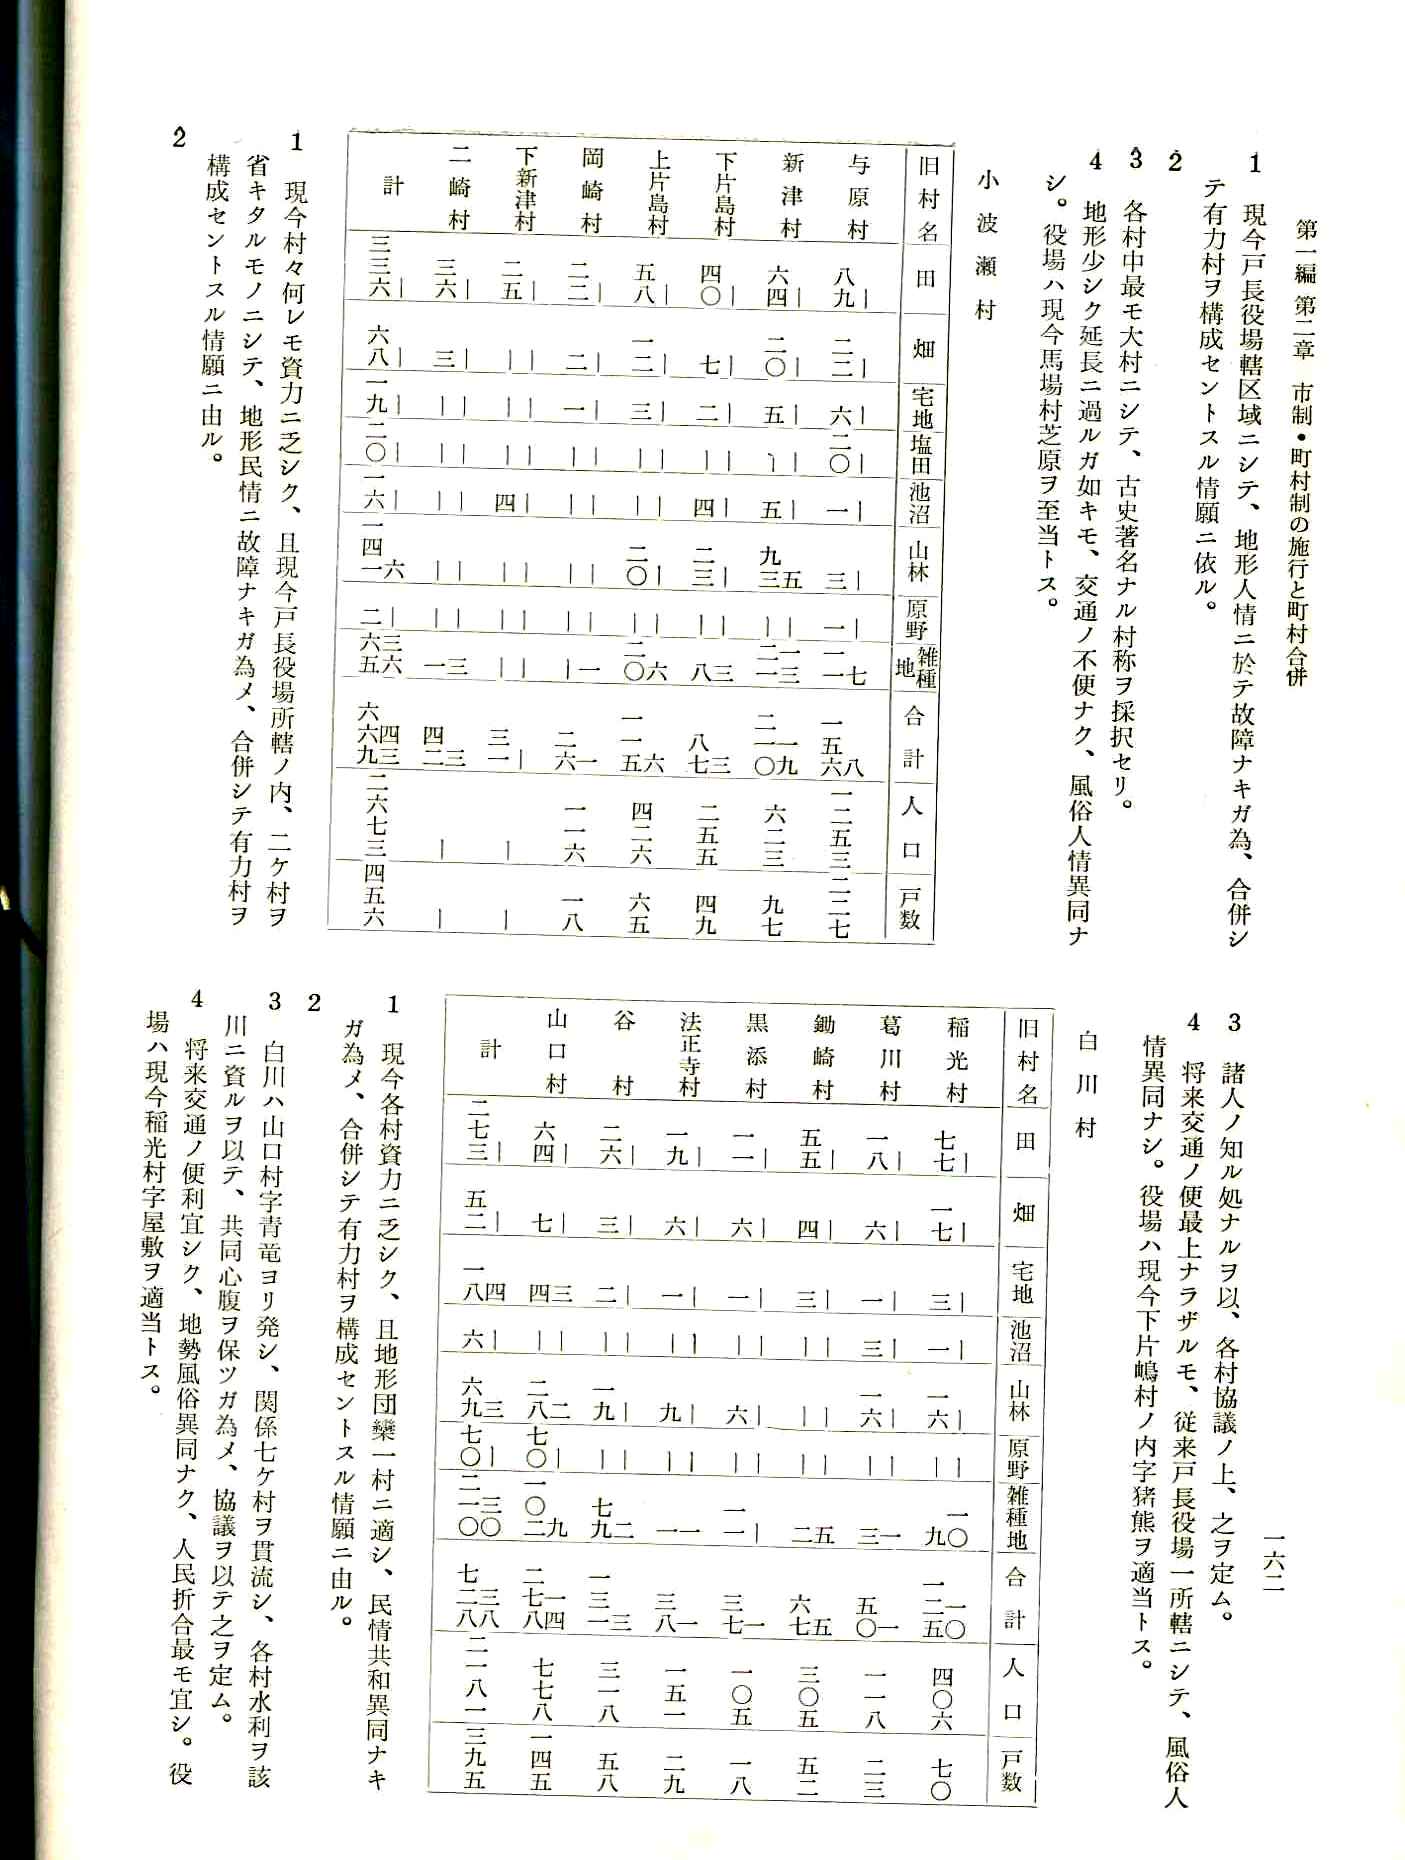 第一編 第二章 市制・町村制の施行と町村合併
一六二
1 現今戸長役場轄区域ニシテ、地形人情ニ於テ故障ナキガ為、合併シ
テ有力村ヲ構成セントスル情願ニ依ル。
2
3 各村中最モ大村ニシテ、古史著名ナル村称ヲ採択セリ。
4 地形少シク延長ニ過ルガ如キモ、交通ノ不便ナク、風俗人情異同ナ
シ。役場ハ現今馬場村芝原ヲ至当トス。
小波瀬村
旧村名 田 畑 宅地 塩田 池沼 山林 原野 雑種地 合計 人口 戸数
与原村 八九― 二二― 六― 二〇― 一― 三― 一― 一一七 一五六八 一二五三 二二七
新津村 六四― 二〇― 五― ―― 五― 九三五 ―― 二一一三 二一〇一九 六二三 九七
下片島村 四〇― 七― 二― ―― 四― 二三― ―― 八三 八七三 二五五 四九
上片島村 五八― 一二― 三― ―― ―― 二〇― ―― 二〇六 一一五六 四二六 六五
岡崎村 二二― 二― 一― ―― ―― ―― ―― ―一 二六一 一一六 一八
下新津村 二五― ―― ―― ―― 四― ―― ―― ―― 三一― ― ―
二崎村 三六― 三― ―― ―― ―― ―― ―― 一三 四二三 ― ―
計 三三六― 六八― 一九― 二〇― 一六― 一四一六 二― 六五三六 六六九四三 二六七三 四五六
1 現今村々何レモ資力ニ乏シク、且現今戸長役場所轄ノ内、二ケ村ヲ
省キタルモノニシテ、地形民情ニ故障ナキガ為メ、合併シテ有力村ヲ
構成セントスル情願ニ由ル。
2
3 諸人ノ知ル処ナルヲ以、各村協議ノ上、之ヲ定ム。
4 将来交通ノ便最上ナラザルモ、従来戸長役場一所轄ニシテ、風俗人
情異同ナシ。役場ハ現今下片嶋村ノ内字猪熊ヲ適当トス。
白川村
旧村名 田 畑 宅地 池沼 山林 原野 雑種地 合計 人口 戸数
稲光村 七七― 一七― 三― 一― 一六― ―― 九一〇 一二五一〇 四〇六 七〇
葛川村 一八― 六― 一― 三― 一六― ―― 三一 五〇一 一一八 二三
鋤崎村 五五― 四― 三― ―― ―― ―― 二五 六七五 三〇五 五二
黒添村 一一― 六― 一― ―― 六― ―― 一一― 三七一 一〇五 一八
法正寺村 一九― 六― 一― ―― 九― ―― 一一 三八一 一五一 二九
谷村 二六― 三― 二― ―― 一九― ―― 七九二 一三一三 三一八 五八
山口村 六四― 七― 四三 ―― 二八二 七〇― 一〇二九 二七八一四 七七八 一四五
計 二七三― 五二― 一八四 六― 六九三 七〇― 二一〇三〇 七二八三八 二一八一 三九五
1 現今各村資力ニ乏シク、且地形団欒一村ニ適シ、民情共和異同ナキ
ガ為メ、合併シテ有力村ヲ構成セントスル情願ニ由ル。
2
3 白川ハ山口村字青竜ヨリ発シ、関係七ケ村ヲ貫流シ、各村水利ヲ該
川ニ資ルヲ以テ、共同心腹ヲ保ツガ為メ、協議ヲ以テ之ヲ定ム。
4 将来交通ノ便利宜シク、地勢風俗異同ナク、人民折合最モ宜シ。役
場ハ現今稲光村字屋敷ヲ適当トス。